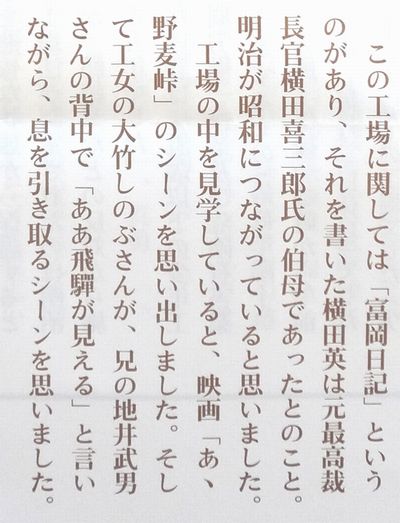 この工場に関しては「富岡日記」という
のがあり、それを書いた横田英は元最高裁
長官横田喜三郎氏の伯母であったとのこと。
明治が昭和につながっていると思いました。
工場の中を見学していると、映画「あゝ
野麦峠」のシーンを思い出しました。そし
て工女の大竹しのぶさんが、兄の地井武男
さんの背中で「ああ飛驒が見える」と言い
ながら、息を引き取るシーンを思いました。